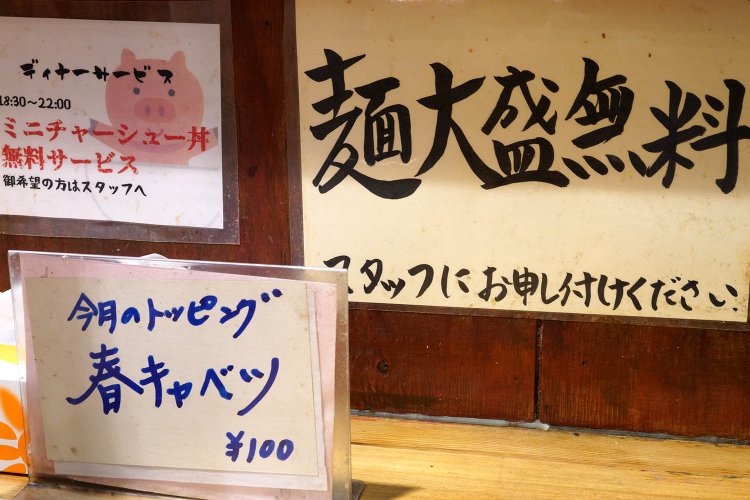 ディナーサービス
18:30～22:00
ミニチャーシュー丼
無料サービス
御希望の方はスタッフへ
麺大盛無料
スタッフにお申し付けください
今月のトッピング
春キャベツ
¥100